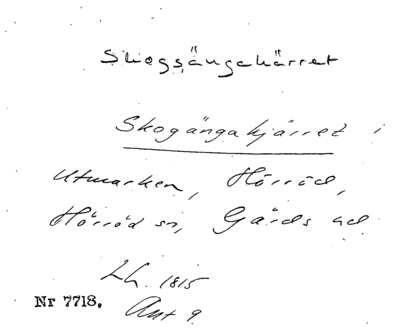 Skogsängakärret
Skogängakjärret i
Utmarken, Hörröd,
Hörröd sn, Gärds hd
Lh. 1815
Nr 7718.
Akt 9